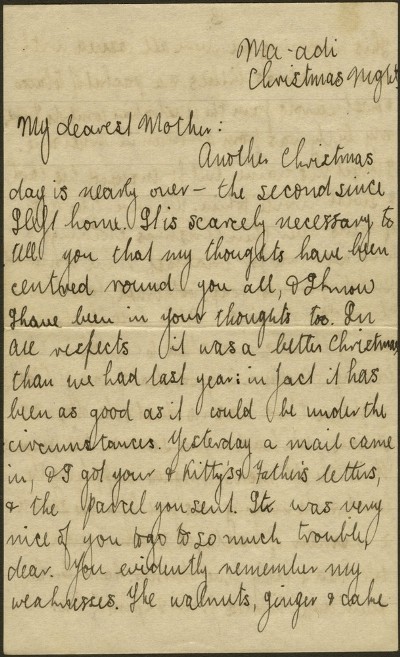 Ma-adi
Christmas Night
My dearest Mother:
Another Christmas
day is nearly over - the second since
I left home. It is scarcely necessary to
tell you that my thoughts have been
centred round you all, & I know
I have been in your thoughts too. In
all respects it was a better Christmas
than we had last year: in fact it has
been as good as it could be under the
circumstances. Yesterday a mail came
in, & I got your & Kitty's & Father's letters,
& the parcel you sent. It was very
nice of you to go to so much trouble,
dear. You evidently remember my
weaknesses. The walnuts, ginger & cake